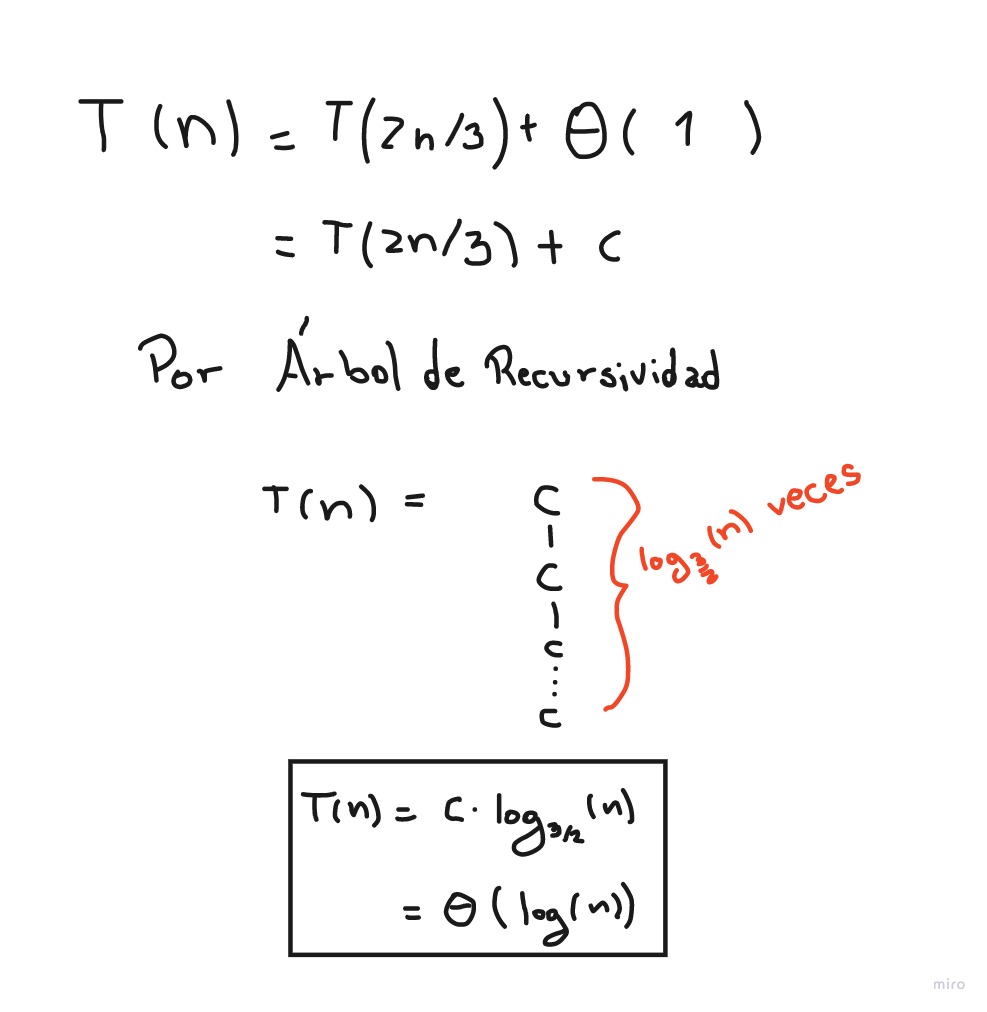 T(n) = T(2n/3) + Θ( 1 )
= T(2n/3) + c
Por Árbol de Recursividad
T(n) =
c
c
c
⋮
c
log_{3/2}(n) veces
T(n) = c · log_{3/2}(n)
= Θ(log(n))
miro